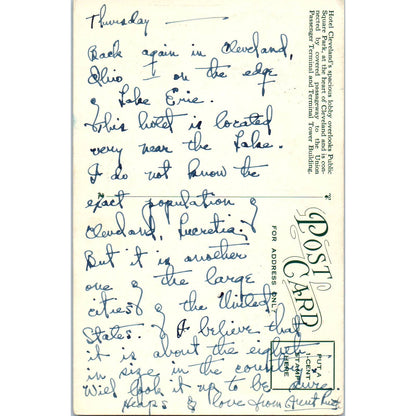 Thursday —
Back again in Cleveland,
Ohio — on the edge
of Lake Erie.
This hotel is located
very near the Lake.
I do not know the
exact population of
Cleveland, Lucretia!
But it is another
one of the large
cities of the United
States. I believe that
it is about the eighth
in size in the country
Will look it up to be sure.
Heaps of love from Aunt
Hotel Cleveland's spacious lobby overlooks Public
Square Park, at the heart of Cleveland and is con-
nected by covered passageway to the Union
Passenger Terminal and Terminal Tower Building.
POST
CARD
FOR ADDRESS ONLY
PUT A
1-CENT
STAMP
HERE